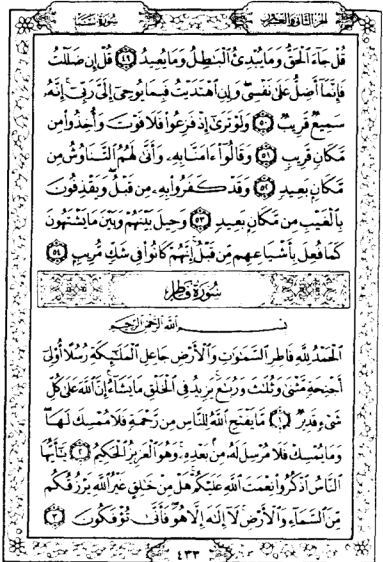 سورة سبإ الجزء الثاني والعشرون
قُلْ جَآءَ الْحَقُّ وَمَا يُبْدِئُ الْبَٰطِلُ وَمَا يُعِيدُ ۝٤٩ قُلْ إِن ضَلَلْتُ
فَإِنَّمَآ أَضِلُّ عَلَىٰ نَفْسِى وَإِنِ اهْتَدَيْتُ فَبِمَا يُوحِىٓ إِلَىَّ رَبِّىٓ إِنَّهُۥ
سَمِيعٌ قَرِيبٌ ۝٥٠ وَلَوْ تَرَىٰٓ إِذْ فَزِعُوا۟ فَلَا فَوْتَ وَأُخِذُوا۟ مِن
مَّكَانٍ قَرِيبٍ ۝٥١ وَقَالُوٓا۟ ءَامَنَّا بِهِۦ وَأَنَّىٰ لَهُمُ التَّنَاوُشُ مِن
مَّكَانٍۭ بَعِيدٍ ۝٥٢ وَقَدْ كَفَرُوا۟ بِهِۦ مِن قَبْلُ وَيَقْذِفُونَ
بِالْغَيْبِ مِن مَّكَانٍۭ بَعِيدٍ ۝٥٣ وَحِيلَ بَيْنَهُمْ وَبَيْنَ مَا يَشْتَهُونَ
كَمَا فُعِلَ بِأَشْيَاعِهِم مِّن قَبْلُ إِنَّهُمْ كَانُوا۟ فِى شَكٍّ مُّرِيبٍۭ ۝٥٤
سورة فاطر
بسم الله الرحمن الرحيم
الْحَمْدُ لِلَّهِ فَاطِرِ السَّمَٰوَٰتِ وَالْأَرْضِ جَاعِلِ الْمَلَٰٓئِكَةِ رُسُلًا أُو۟لِىٓ
أَجْنِحَةٍ مَّثْنَىٰ وَثُلَٰثَ وَرُبَٰعَ يَزِيدُ فِى الْخَلْقِ مَا يَشَآءُ إِنَّ اللَّهَ عَلَىٰ كُلِّ
شَىْءٍ قَدِيرٌ ۝١ مَّا يَفْتَحِ اللَّهُ لِلنَّاسِ مِن رَّحْمَةٍ فَلَا مُمْسِكَ لَهَا
وَمَا يُمْسِكْ فَلَا مُرْسِلَ لَهُۥ مِنۢ بَعْدِهِۦ وَهُوَ الْعَزِيزُ الْحَكِيمُ ۝٢ يَٰٓأَيُّهَا
النَّاسُ اذْكُرُوا۟ نِعْمَتَ اللَّهِ عَلَيْكُمْ هَلْ مِنْ خَٰلِقٍ غَيْرُ اللَّهِ يَرْزُقُكُم
مِّنَ السَّمَآءِ وَالْأَرْضِ لَآ إِلَٰهَ إِلَّا هُوَ فَأَنَّىٰ تُؤْفَكُونَ ۝٣
٤٣٣